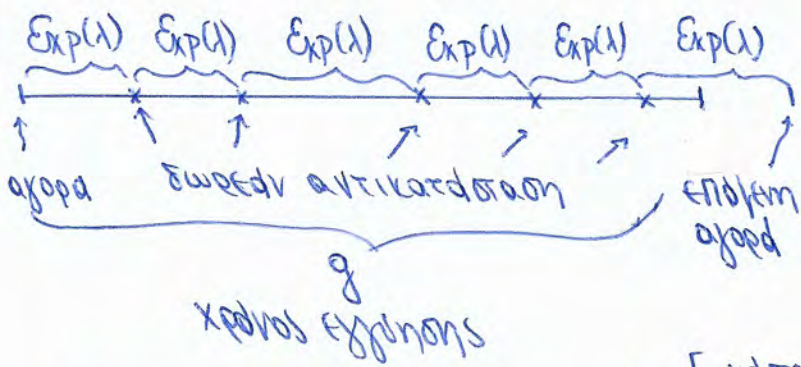 Exp(λ) Exp(λ) Exp(λ) Exp(λ) Exp(λ) Exp(λ)
αγορα δωρεάν αντικατάσταση επόμενη
αγορά
g
χρόνος εγγύησης